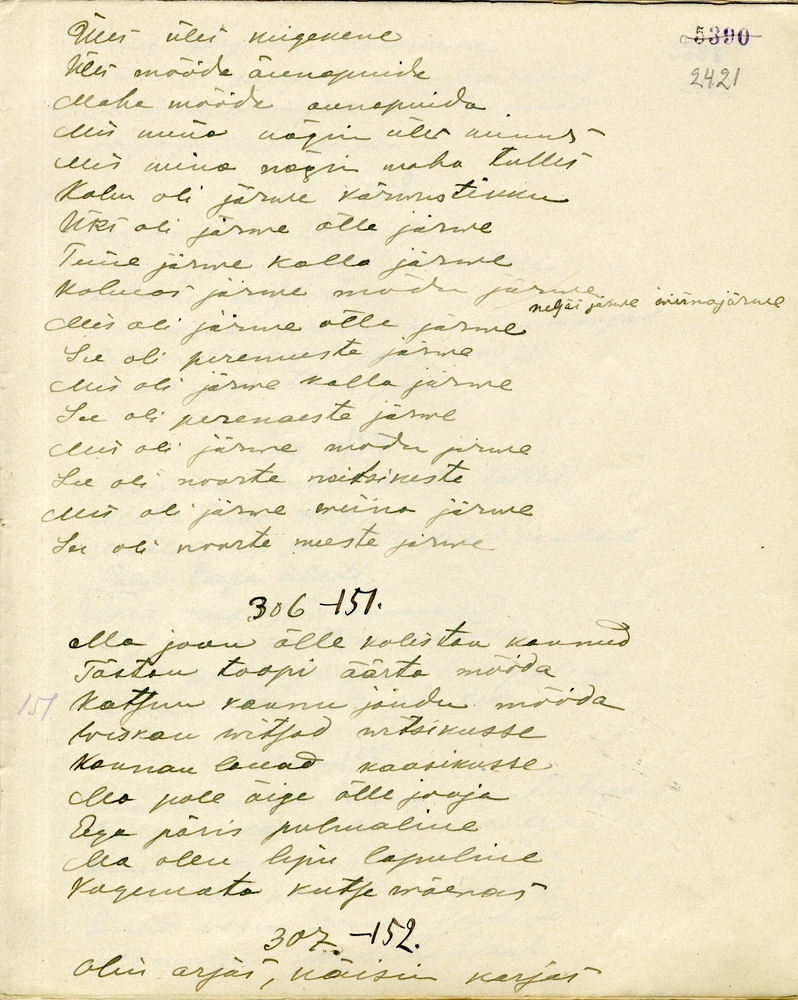 5390
2421
Üles üles kuigekene
Üles mööda õunapuida
Maha mööda õunapuida
Mis mina nägin ülls minnes
Mis mina nägin maha tulles
Kolm oli järwe kärmustikku
Üks oli järwe õlle järwe
Teine järwe kalla järwe
Kolmas järwe mõdu järwe
neljäs järwe wiinajärwe
Mis oli järwe õlle järwe
See oli peremeeste järwe
Mis oli järwe kalla järwe
See oli perenaeste järwe
Mis oli järwe mõdu järwe
See oli noorte neitsikeste
Mis oli järwe wiina järwe
See oli noorte meeste järwe
306 -151.
Ma joon õlle kolistan kannud
Tõstan toopi äärta mööda
151
Katsun kannu jõudu mööda
Wiskan witsad witsikusse
Kannan lauad kaasikusse
Ma pole õige õlle jooja
Ega päris pulmaline
Ma olen lipu lapuline
Kogemata kutse mõenas
307. -152.
Olin arjas, käisin karjas